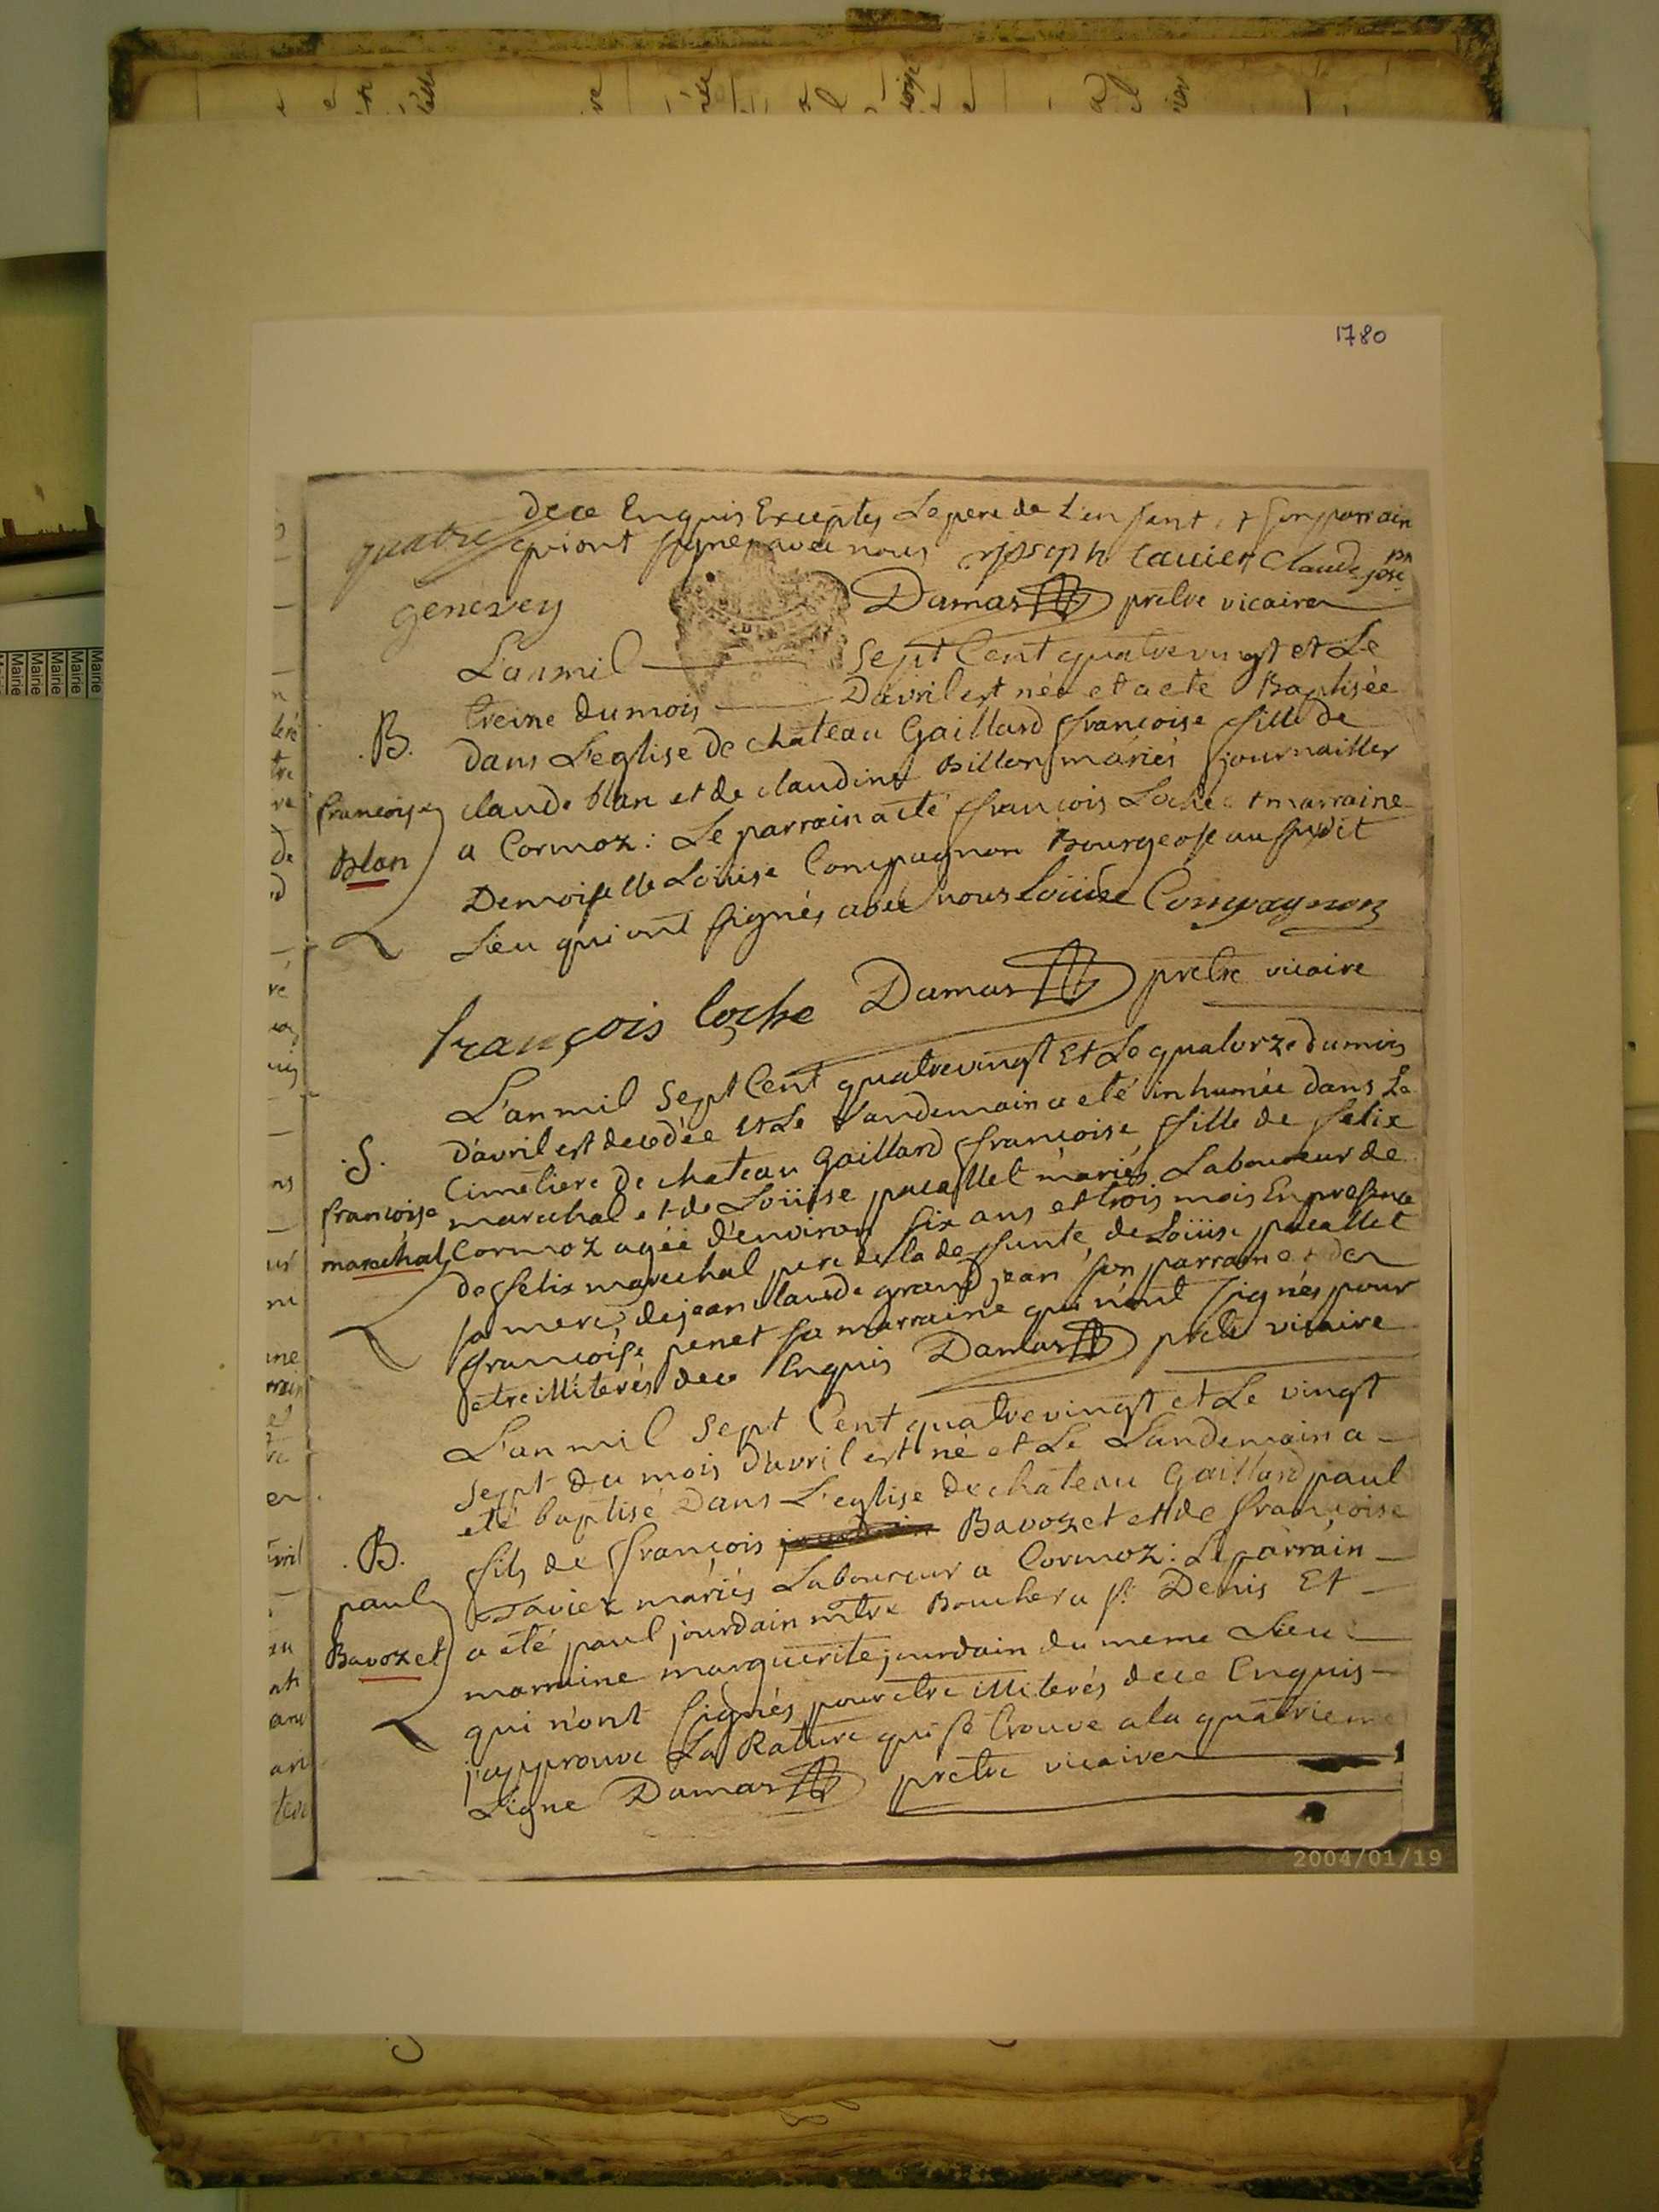 1780
dece Enquis Exceptés Le pere de L'enfant, et son parrain
quatre qui ont signés avec nous joseph tavier Claude jose
genevey Damas prêtre vicaire
L'an mil Sept Cent quatre vingt et Le
treize du mois D'avril est née et a eté Baptisée
.B. dans L'eglise de chateau Gaillard françoise fille de
claude blan et de claudine Billon mariés journallier
françoise a Cormoz: Le parrain a eté françois Loche et marraine
Blan Demoiselle Loüise Compagnon Bourgeose au susdit
Lieu qui ont signés avec nous Loüise Compagnon
françois loche Damas prêtre vicaire
L'an mil Sept Cent quatrevingt Et Le quatorze du mois
D'avril est decedée Et Le Landemain a eté inhumée dans Le
.S. Cimetiere de chateau Gaillard françoise fille de felix
françoise marechal et de Loüise pacallet mariés Laboureur de
marechal Cormoz agée d'environ six ans et trois mois En presence
de felix marechal pere de la deffunte, de Loüise pacallet
sa mere, de jean claude grand jean son parrain et de
françoise penet sa marraine qui n'ont signés pour
etre illiterés dece Enquis Damas prêtre vicaire
L'an mil Sept Cent quatrevingt et Le vingt
Sept du mois D'avril est né et Le Landemain a
eté baptisé Dans L'eglise de chateau Gaillard paul
.B. fils de françois Bavozet et de françoise
paul Tavier mariés Laboureur a Cormoz: Le parrain
Bavozet a eté paul jourdain mtre Boucher a st Denis Et
marraine marguerite jourdain du meme Lieu
qui n'ont signés pour etre illiterés dece Enquis
j'approuve La Rature qui se trouve a la quatrieme
Ligne Damas prêtre vicaire
2004/01/19
Mairie
Mairie
Mairie
Mairie